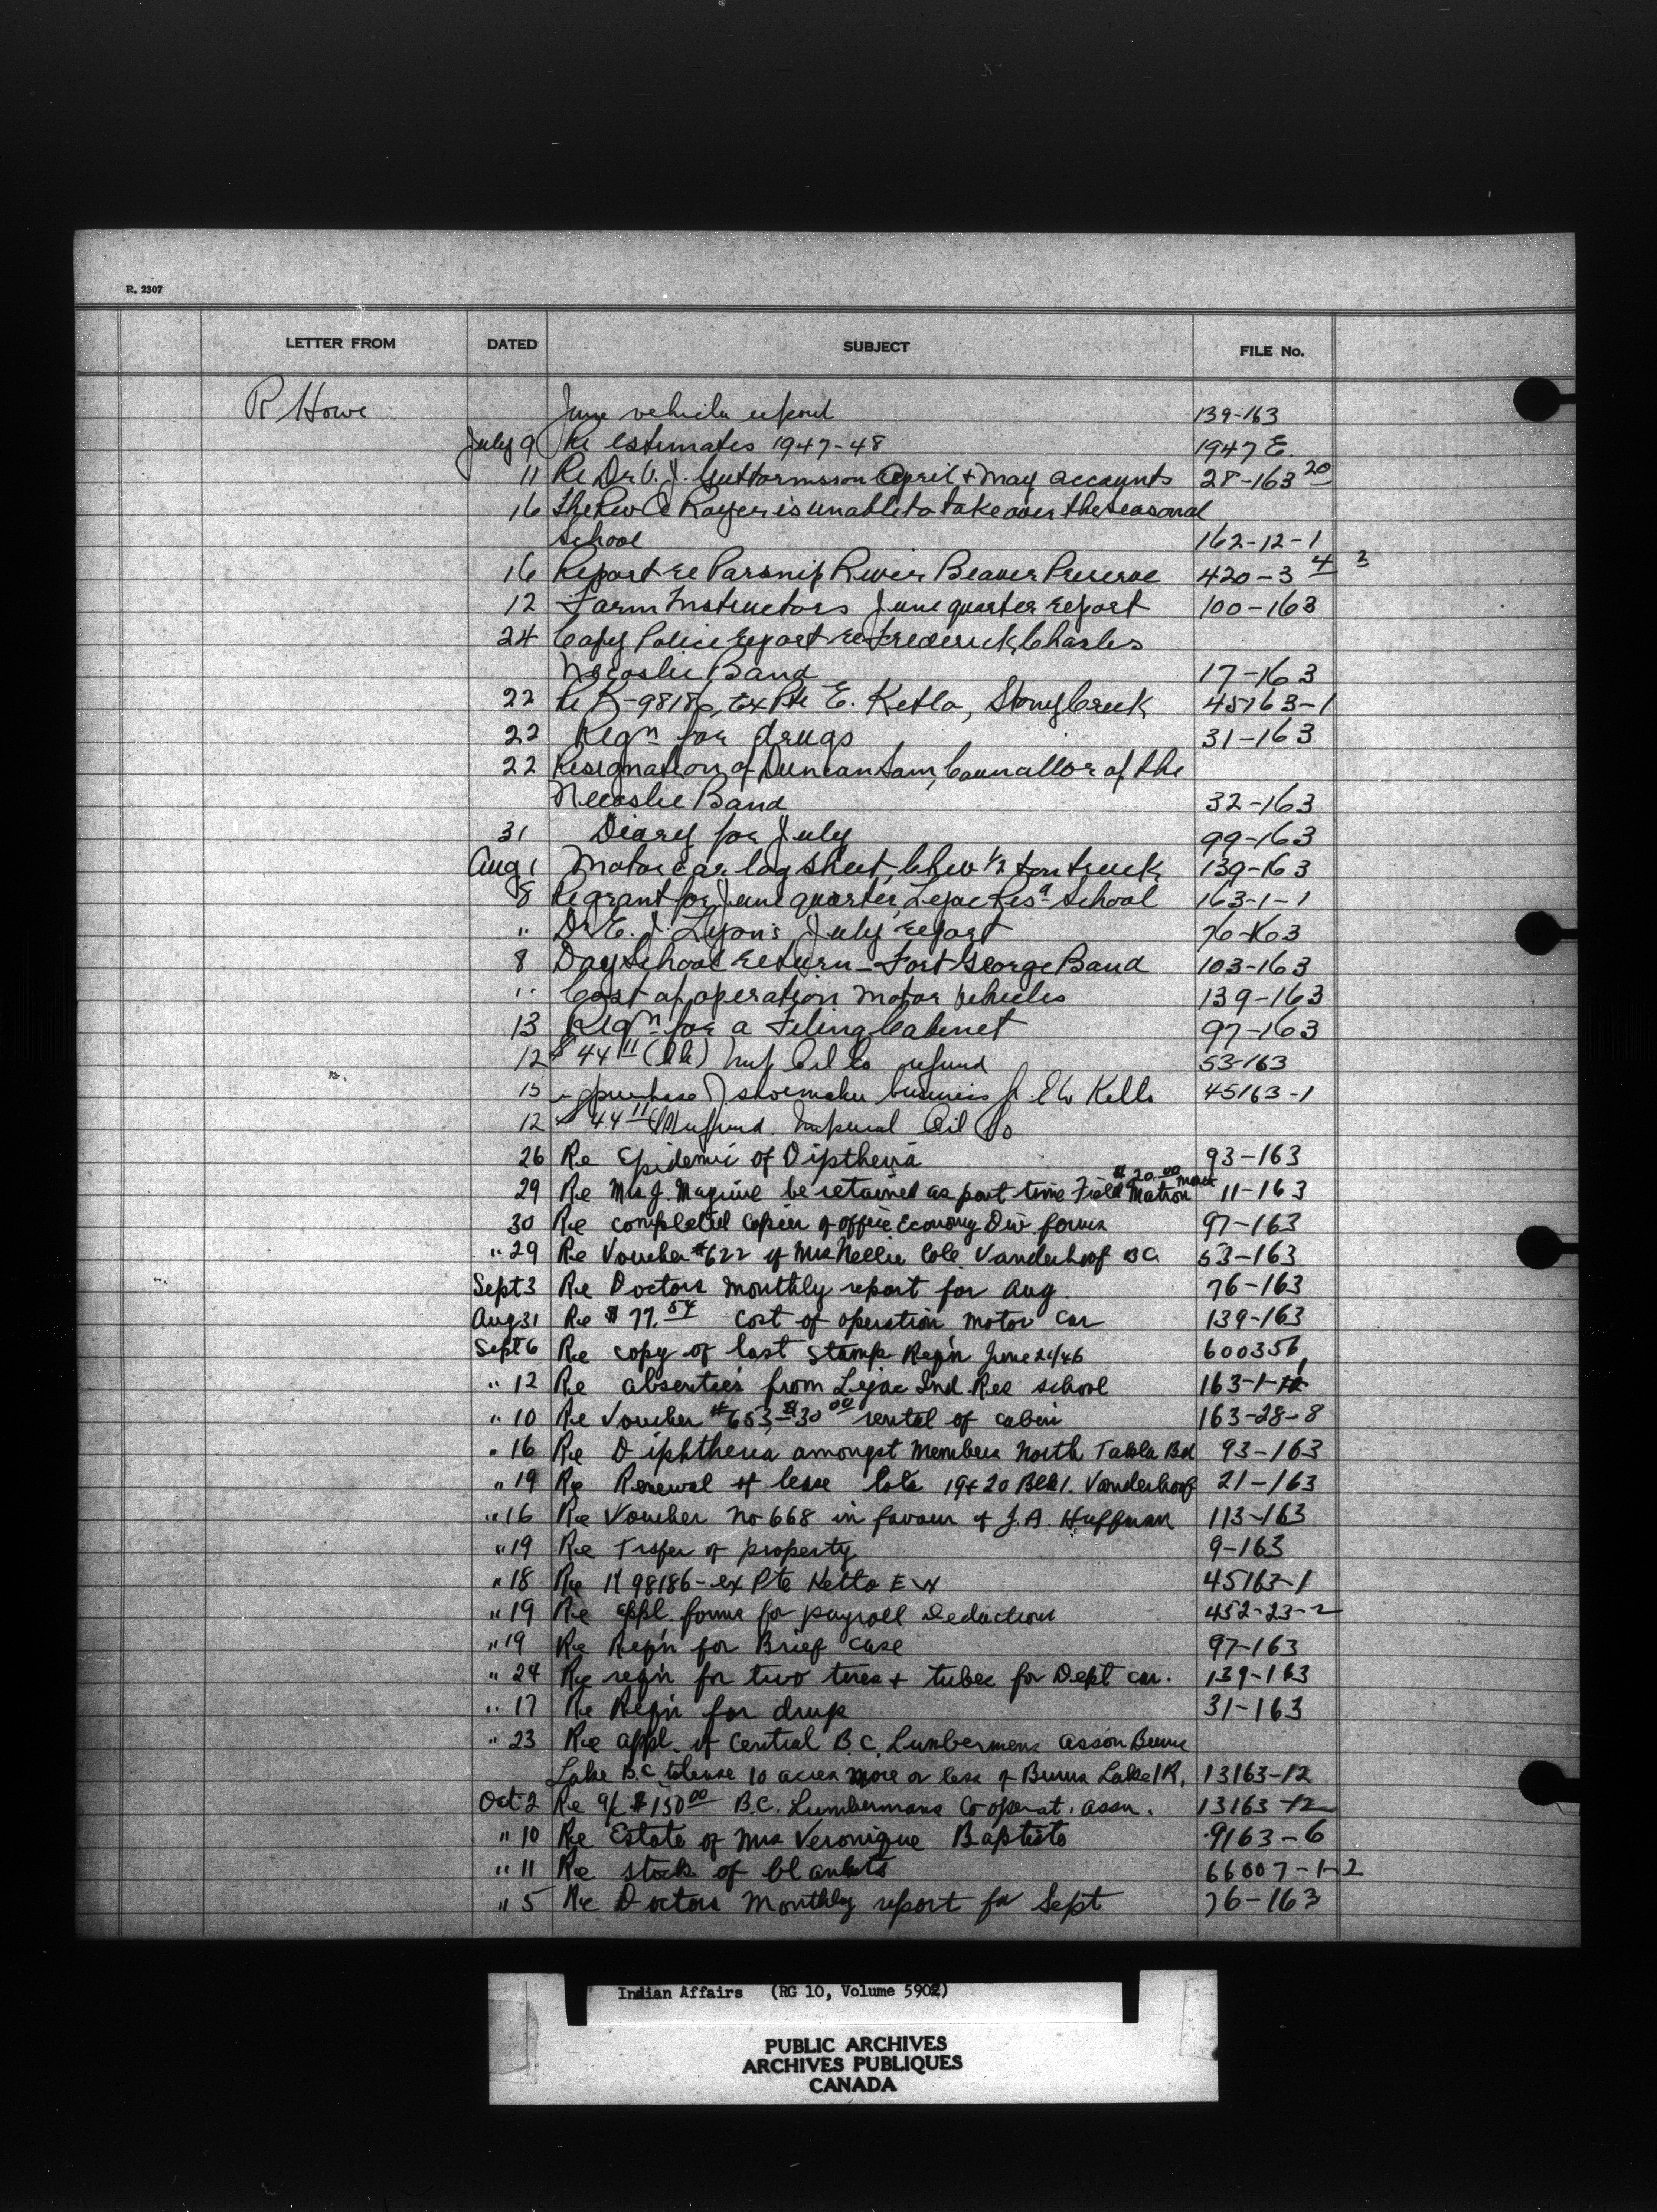 R. 2307
LETTER FROM DATED SUBJECT FILE No.
R Howe June vehicle report 139-163
July 9 Re estimates 1947-48 1947 E.
11 Re Dr. V. J. Guttormsson April & May accounts 28-163 20
16 The Rev is unable to take over the seasonal
school 162-12-1
16 Report re Parsnip River Beaver Preserve 420-3 4 3
12 Farm Instructors June quarter report 100-163
24 Copy Police report re Frederick Charles
Necoslie Band 17-163
22 Re K-98186, Ex Pte E. Ketlo, Stony Creek 45163-1
22 Reqn for drugs 31-163
22 Resignation of Duncan Sam, Councillor of the
Necoslie Band 32-163
31 Diary for July 99-163
Aug 1 Motor car log sheet, Chev 1/2 ton truck 139-163
8 Re grant for June quarter, Lejac Res. School 163-1-1
" Dr E. J. Lyon's July report 76-163
8 Day School return - Fort George Band 103-163
" Cost of operation motor vehicles 139-163
13 Reqn for a Filing Cabinet 97-163
12 $44 11 Imp Oil Co refund 53-163
15 purchase of shoemaker business 45163-1
12 $44 11 refund Imperial Oil Co
26 Re Epidemic of Diptheria 93-163
$20.00 month
29 Re Mrs J. Maguire be retained as part time Field Matron 11-163
30 Re completed copies of office Economy Div forms 97-163
" 29 Re Voucher #622 of Mrs Nellie Cole Vanderhoof BC 53-163
Sept 3 Re Doctors monthly report for Aug. 76-163
Aug 31 Re $77.54 cost of operation motor car 139-163
Sept 6 Re copy of last stamp Req'n June 26/46 600356
" 12 Re absentees from Lejac Ind. Res school 163-1-1
" 10 Re Voucher #653, $30 00 rental of cabin 163-28-8
" 16 Re Diphtheria amongst members North Takla Bd 93-163
" 19 Re Renewal of lease lots 19+20 Blk 1. Vanderhoof 21-163
" 16 Re Voucher no 668 in favour of J.A. Huffman 113-163
" 19 Re Trsfer of property 9-163
" 18 Re K 98186 - ex Pte Ketlo E W 45163-1
" 19 Re appl. forms for payroll deductions 452-23-2
" 19 Re Req'n for Brief case 97-163
" 24 Re req'n for two tires + tubes for Dept car. 139-163
" 17 Re Req'n for drugs 31-163
" 23 Re appl. of Central B.C. Lumbermens asson Burns
Lake B.C. to lease 10 acres more or less of Burns Lake I R. 13163-12
Oct 2 Re a/c $150 00 B.C. Lumbermans Cooperat. assn. 13163-12
" 10 Re Estate of Mrs Veronique Baptiste 9163-6
" 11 Re stock of blankets 66007-1-2
" 5 Re Doctors Monthly report for Sept 76-163
Indian Affairs (RG 10, Volume 5902)
PUBLIC ARCHIVES
ARCHIVES PUBLIQUES
CANADA